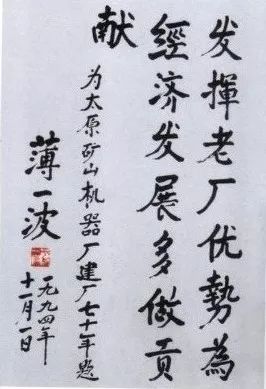 发揮老厂优勢為
經济发展多做貢
献
为太原矿山机器厂建厂七十一年题
薄一波
一九九四年
十一月一日